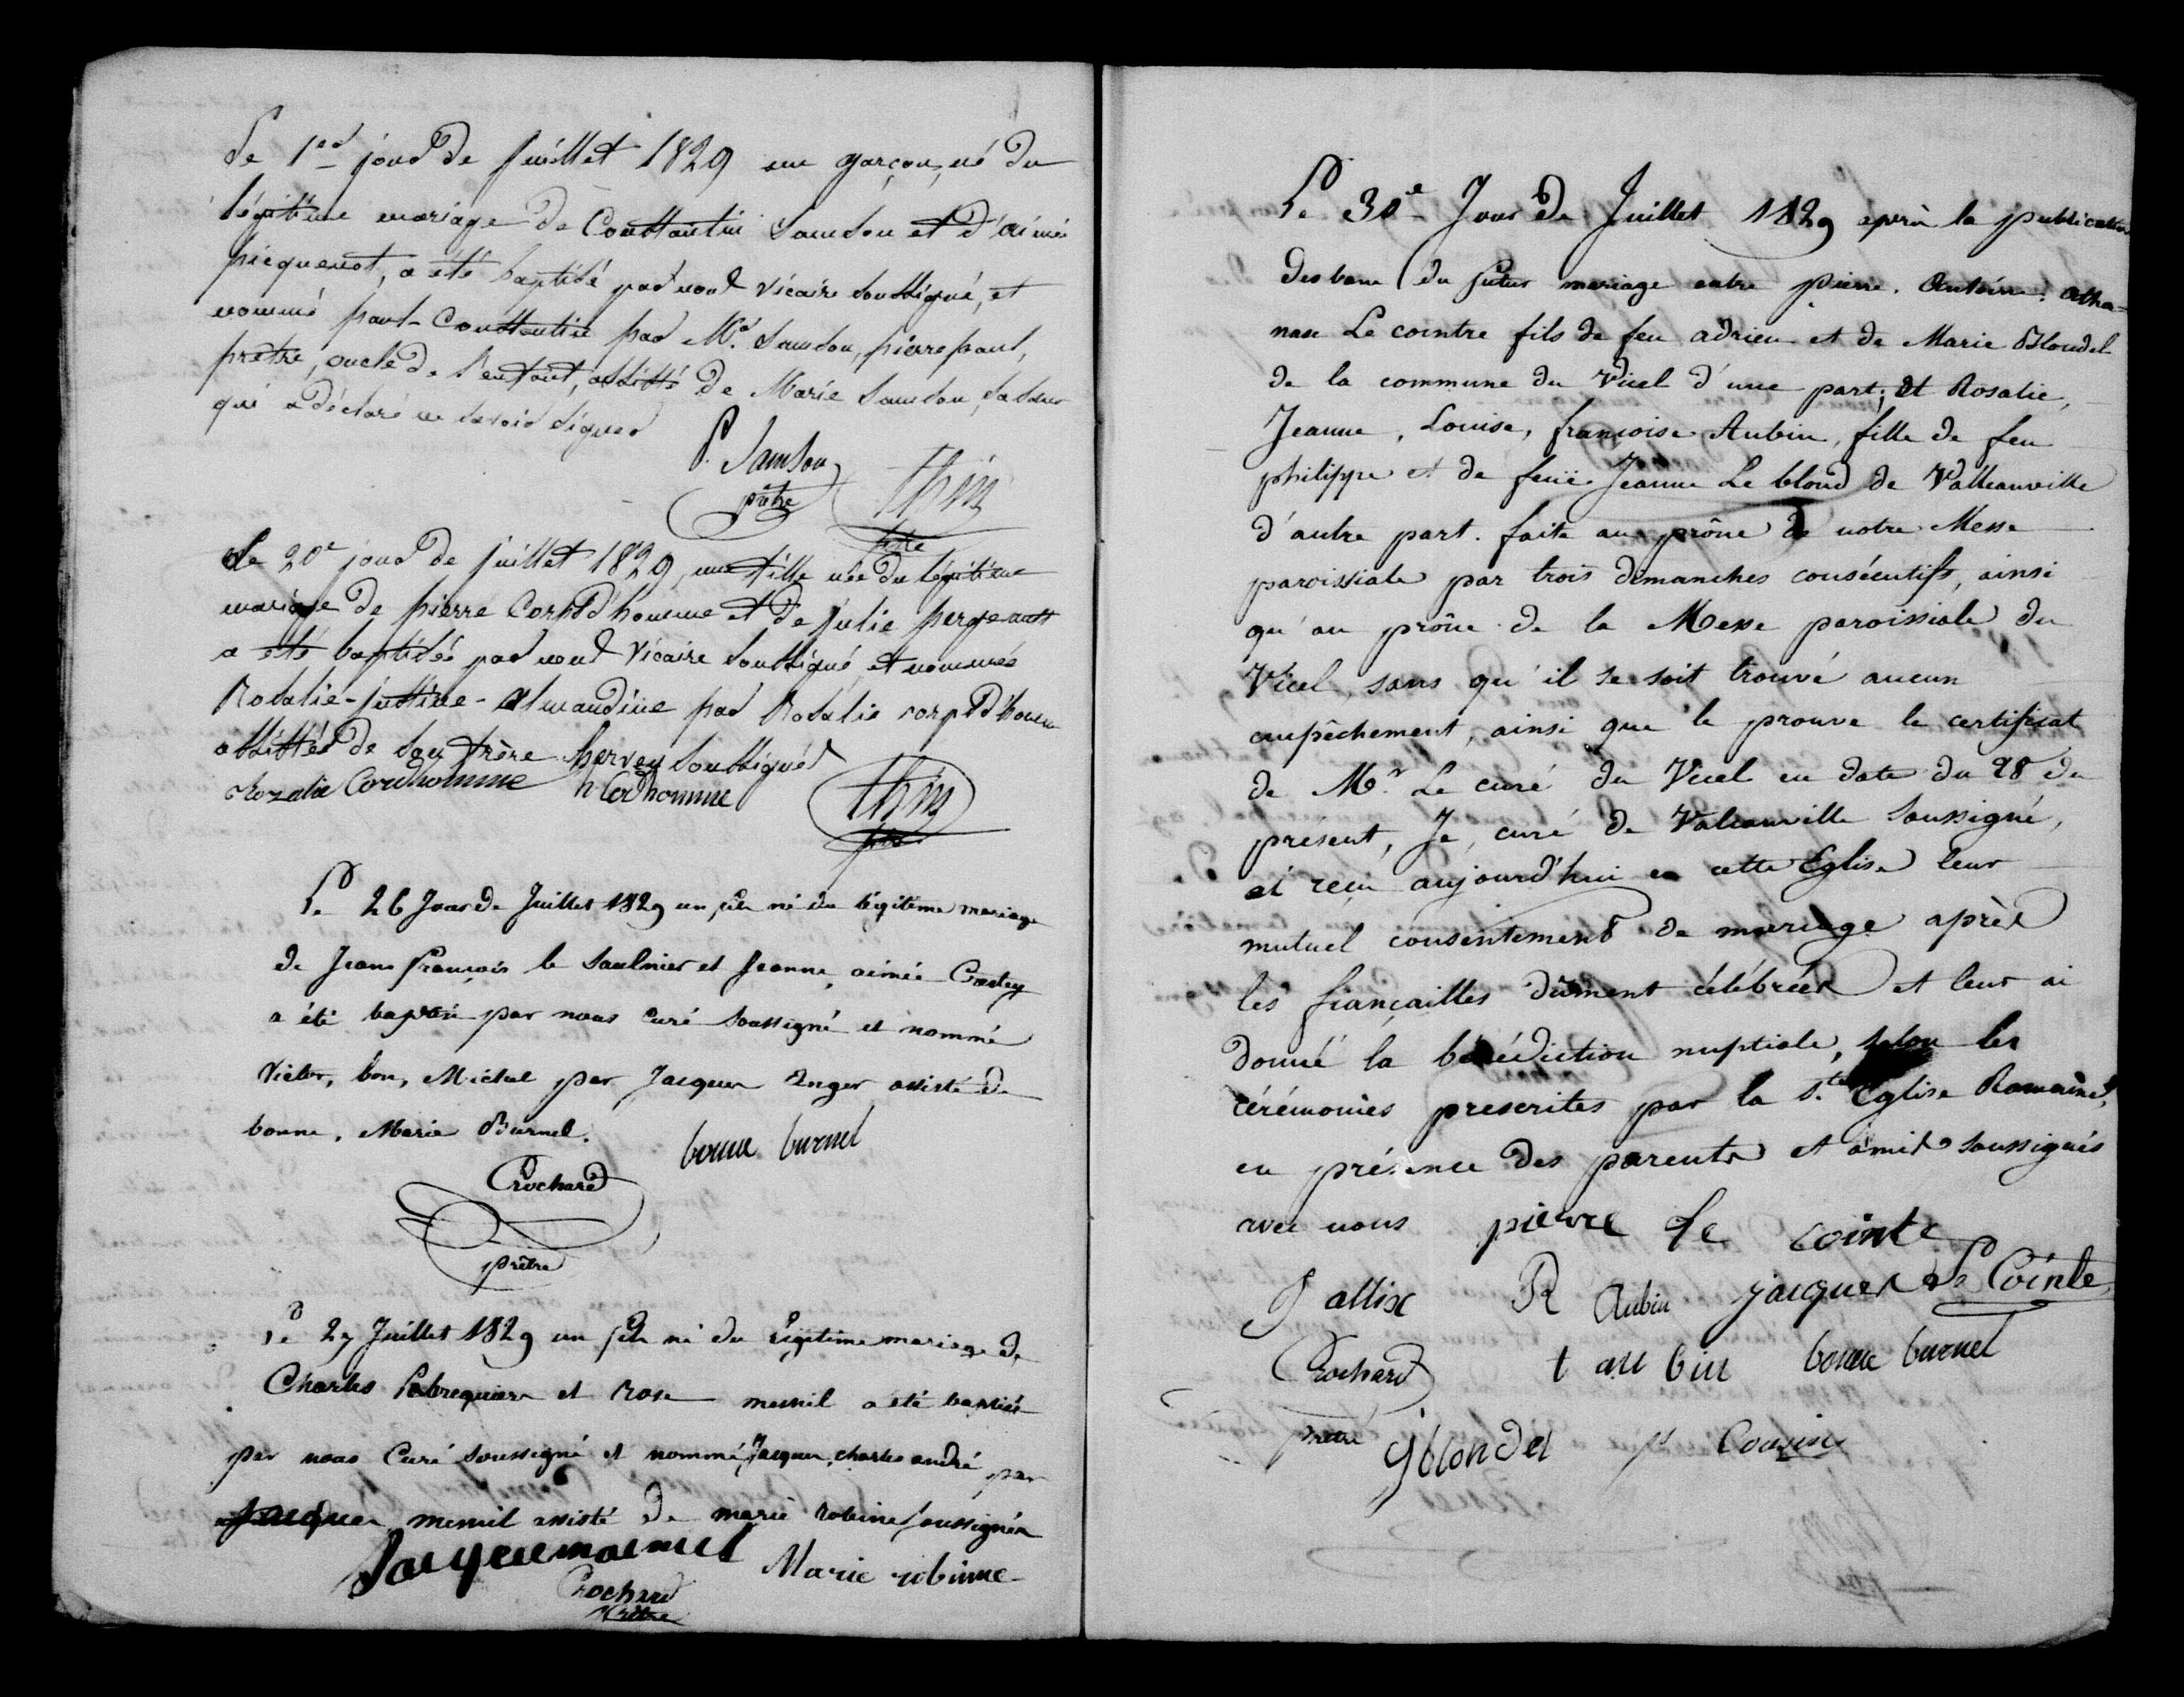 Le 1er jour de juillet 1829 un garçon, né du
légitime mariage de Constantin Samson et d'aimée
picquenot, a été baptisé par nous vicaire soussigné, et
nommé paul-Constantin par Mr. Samson, pierre paul,
prêtre, oncle de l'enfant, assisté de Marie Samson, sa sœur
qui a déclaré ne savoir signer
P. Samson
prêtre
thin
ptre
Le 20e jour de juillet 1829, une fille née du légitime
mariage de pierre Corps d'homme et de julie
a été baptisée par nous vicaire soussigné, et nommée
Rosalie-justine-almandine par Rosalie corps d'homme
assistée de son frère hervey soussignés
Rozalie Cordhomme h Cordhomme
thin
ptre
Le 26 Jour de Juillet 1829 un fils né du légitime mariage
de Jean françois le Saulnier et Jeanne, aimée Castey
a été baptisé par nous Curé soussigné et nommé
Victor, bon, Michel par Jacques Enger assisté de
bonne, Marie Burnel.
bonne burnel
Crochard
prêtre
Le 27 Juillet 1829 un fils né du légitime mariage de
Charles Labrequiere et rose mesnil a été baptisé
par nous Curé soussigné et nommé, Jacques, charles andré par
Jacques mesnil assisté de marie robine soussignés
Marie robinne
Crochard
prêtre
Le 30e Jour de Juillet 1829 après la publication
des bans du futur mariage entre pierre. Antoine. Atha-
nase Le cointre fils de feu adrien et de Marie Blondel
de la commune du Vicel d'une part; et Rosalie,
Jeanne, Louise, françoise Aubin, fille de feu
philippe et de feuë Jeanne Le blond de Valleauville
d'autre part. faite au prône de notre Messe
paroissiale par trois dimanches consécutifs, ainsi
qu'au prône de la Messe paroissiale du
Vicel sans qu'il se soit trouvé aucun
empêchement, ainsi que le prouve le certificat
de Mr. Le curé du Vicel en date du 28 du
présent, Je, curé de Valcanville soussigné,
ai reçu aujourd'hui en cette Eglise leur
mutuel consentement de mariage après
les fiançailles dûment célébrées et leur ai
donné la bénédiction nuptiale, selon les
cérémonies prescrites par la Ste Eglise Romaine,
en présence des parents et amis soussignés
avec nous pierre le cointe
J allix R Aubin jacques Le Cointe
Crochard t aubin bonne burnel
prêtre Blondel Cousin